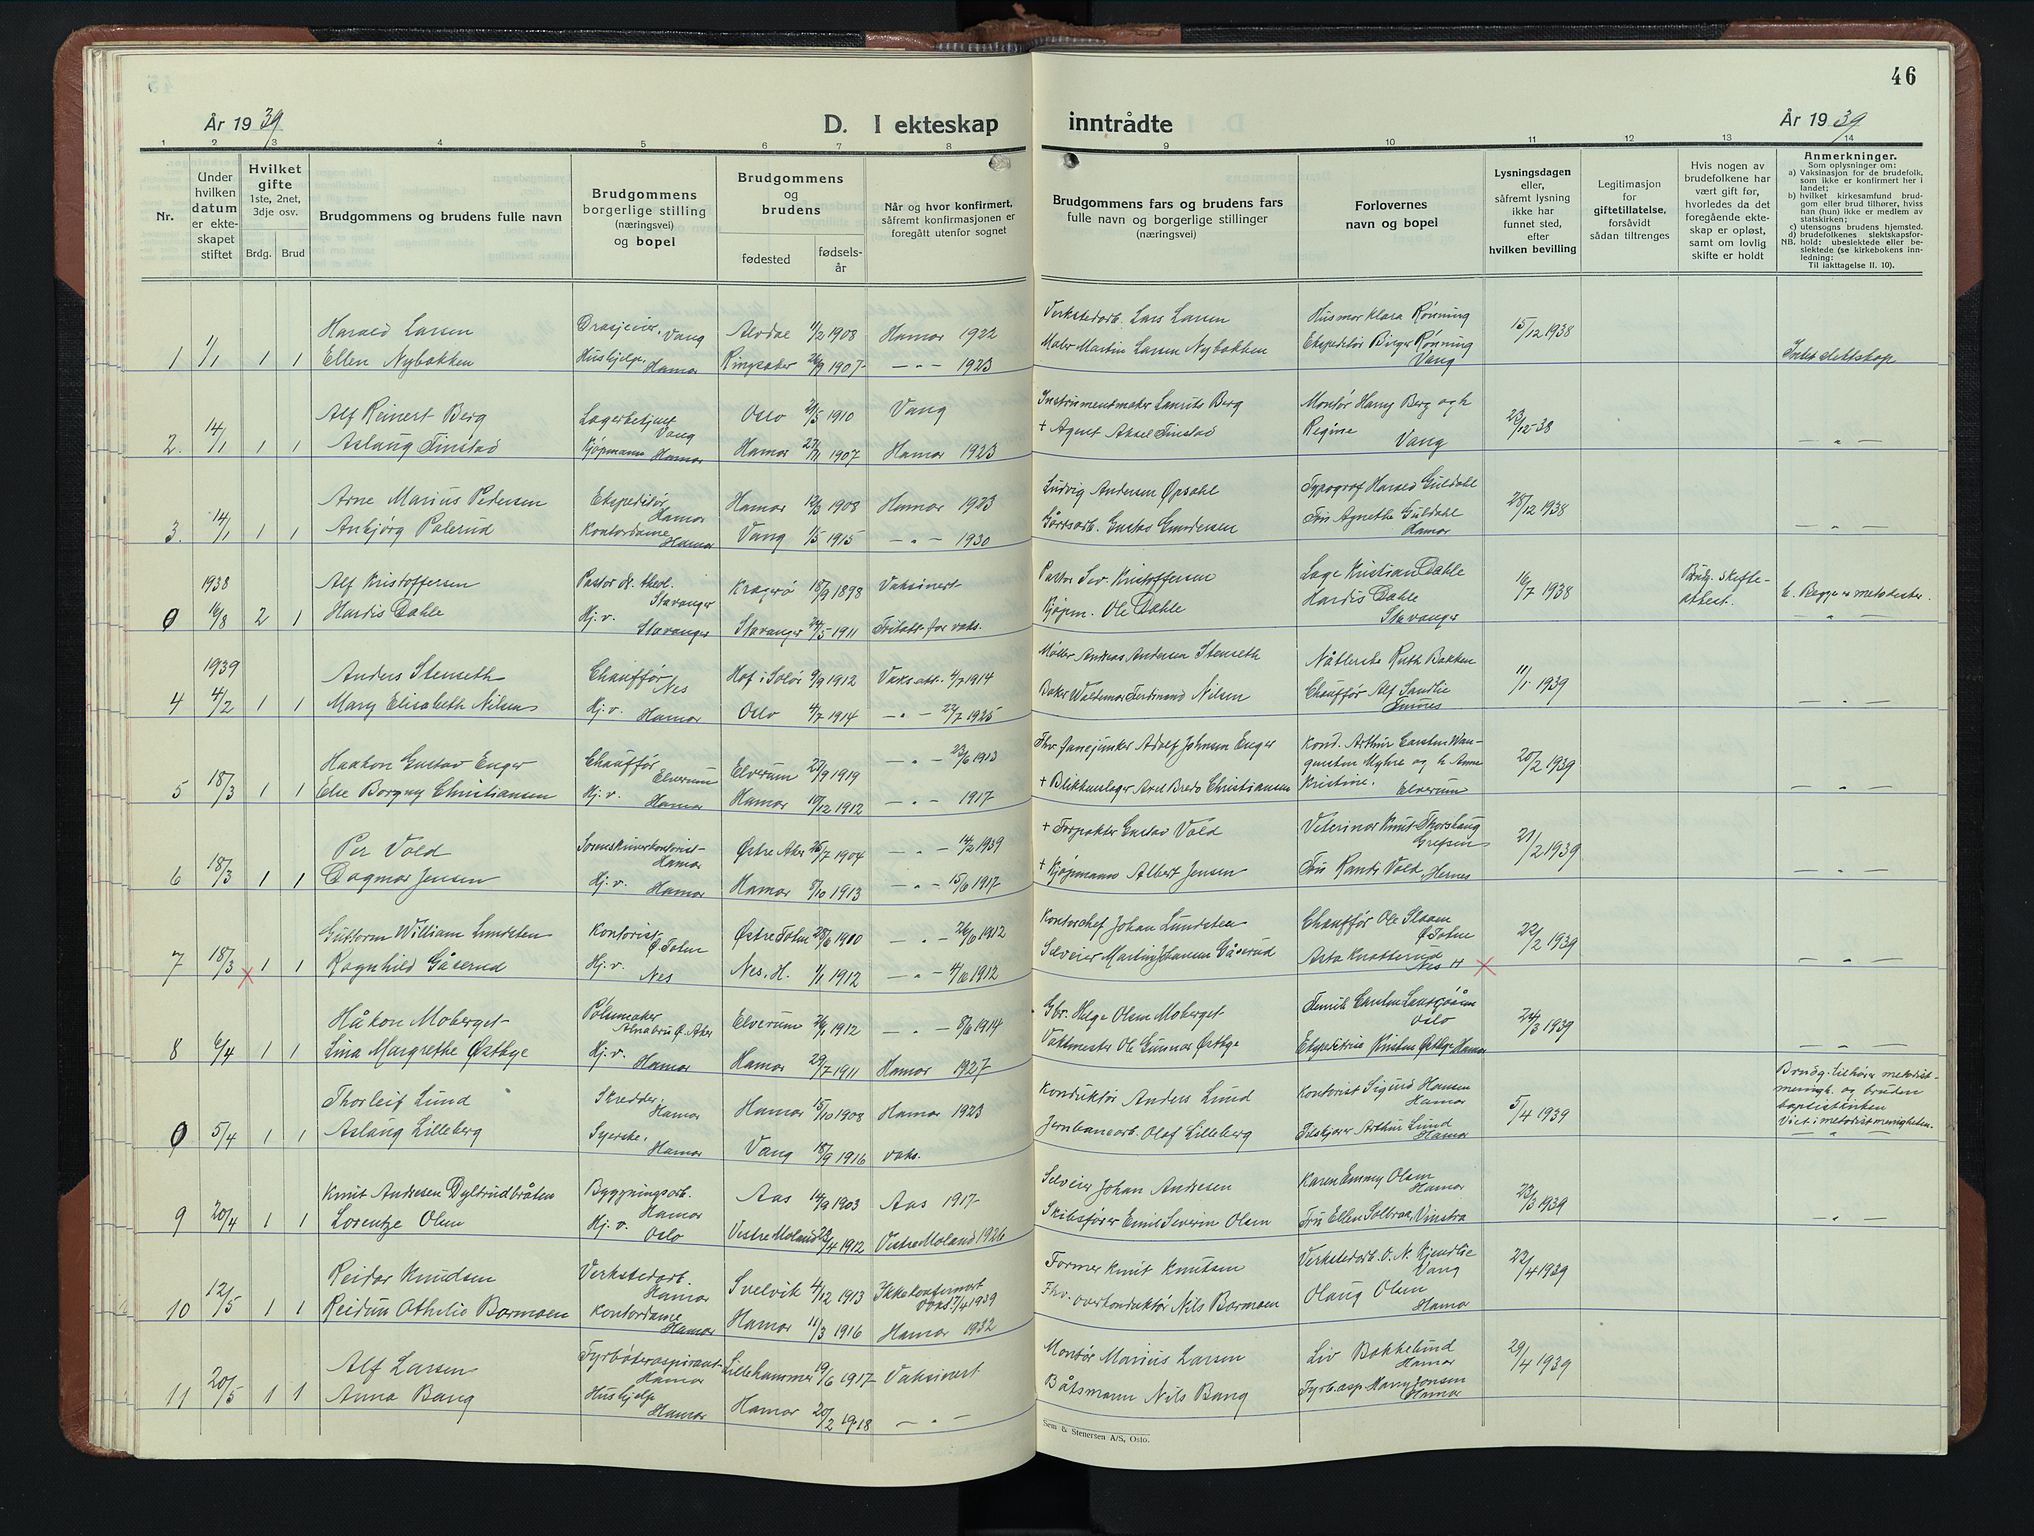 46
År 1939
D. I ekteskap inntrådte
År 1939
1 2 3 4 5 6 7 8 9 10 11 12 13 14
Nr.
Under hvilken datum er ekteskapet stiftet
Hvilket gifte 1ste, 2net, 3dje osv.
Brdg. Brud
Brudgommens og brudens fulle navn
Brudgommens borgerlige stilling (næringsvei) og bopel
Brudgommens og brudens
fødested
fødselsår
Når og hvor konfirmert, såfremt konfirmasjonen er foregått utenfor sognet
Brudgommens fars og brudens fars fulle navn og borgerlige stillinger (næringsvei)
Forlovernes navn og bopel
Lysningsdagen eller, såfremt lysning ikke har funnet sted, efter hvilken bevilling
Legitimasjon for giftetillatelse, forsåvidt sådan tiltrenges
Hvis nogen av brudefolkene har vært gift før, hvorledes da det foregående ekteskap er opløst, samt om lovlig skifte er holdt
Anmerkninger.
Som oplysninger om:
a) Vaksinasjon for de brudefolk, som ikke er konfirmert her i landet;
b) hvilket kirkesamfund brudgom eller brud tilhører, hvis han (hun) ikke er medlem av statskirken;
c) utensogns brudens hjemsted.
d) brudefolkenes slektskapsforhold: ubeslektede eller beslektede (se kirkebokens innledning:
NB.
Til iakttagelse II. 10).
Harald Larsen Vang Alvdal 11/2 1908 Hamar 1922 Verkstedarb. Lars Larsen Husmor Klara Rønning 15/12 1938
1 1/1 1 1 Ellen Nybakken Hushjelp, Hamar Ringsaker 26/9 1907 — " — 1923 Maler Martin Larsen Nybakken Ekspeditør Birger Rønning Vang Intet slektskap
Alf Reinert Berg Lagerbetjent Vang Oslo 21/5 1910 Vang Instrumentmaker Laurits Berg Montør Harry Berg og h. 23/12-38
2. 14/1 1 1 Aslaug Finstad Kjøpmann Hamar Hamar 27/11 1907 Hamar 1923 + Agent Aksel Finstad Regine Vang — " —
Arne Marius Pedersen Ekspeditør Hamar Hamar 12/3 1908 Hamar 1923 Ludvig Andersen Opsahl Typograf Harald Guldahl 28/12 1938
3. 14/1 1 1 Anbjørg Palerud Kontordame Hamar Vang 1/5 1915 — " — 1930 Gustav Gundersen Fru Agnethe Guldahl Hamar — " —
1938 Alf Kristoffersen Pastor dr. theol. Stavanger Kragerø 18/9 1898 Vaksinert Pastor Sev. Kristoffersen Lage Kristian Dahle 16/7 1938 Brudg. Skifteattest. b. Begge er metodister.
0 16/8 2 1 Hardis Dahle Hj. v. Stavanger Stavanger 24/5 1911 Fritatt for vaks. Kjøpm. Ole Dahle Hardis Dahle Stavanger — " —
1939 Anders Stenseth Chauffør Nes Hof i Solør 9/9 1912 Vaks.att. 4/7 1914 Møller Andreas Andersen Stenseth Ruth Bakken 11/1 1939
4 4/2 1 1 Mary Elisabeth Nilsen Hj. v. Hamar Oslo 4/7 1914 — " — 24/7 1925 Baker Waldemar Ferdinand Nilsen Chauffør Alf Sandlie Furnes — " —
Haakon Gustav Enger Chauffør Elverum Elverum 27/9 1919 — " — 23/6 1913 Adolf Johnsen Enger Kond. Arthur Carsten Wangensten Myhre og h. Anna 20/2 1939
5 18/3 1 1 Else Borgny Christiansen Hj. v. Hamar Hamar 10/12 1912 — " — 1917 + Blikkenslager Axel Bredo Christiansen Kristine. Elverum — " —
Per Vold Sorenskriverkontorist Hamar Østre Aker 26/7 1904 — " — 14/2 1939 + Forpakter Gustav Vold Veterinær Knut Thorshaug Grefsen 21/2 1939
6 18/3 1 1 Dagmar Jensen Hj. v. Hamar Hamar 5/10 1913 — " — 15/6 1917 + Kjøpmann Albert Jensen Fru Randi Vold, Hernes — " —
Guttorm William Lundsten Kontorist Ø. Toten Østre Toten 28/6 1910 — " — 26/6 1912 Kontorchef Johan Lundsten Chauffør Ole Slaaen Ø. Toten 22/2 1939
7 18/3 x 1 1 Ragnhild Gåserud Hj. v. Nes Nes. H. 1/1 1912 — " — 4/6 1912 Selveier Martin Johansen Gåserud Asta Knatterud Nes H x — " —
Håkon Moberget Pølsemaker Alnabru Ø. Aker Elverum 26/1 1912 — " — 8/6 1914 Gbr. Helge Olsen Moberget Oslo 24/3 1939
8 6/4 1 1 Lina Margrethe Østbye Hj. v. Hamar Hamar 29/7 1911 Hamar 1927 Vaktmester Ole Gunnar Østbye Ekspeditrise Kirsten Østbye Hamar — " —
Thorleif Lund Skredder, Hamar Hamar 15/10 1908 Hamar 1923 Konduktør Anders Lund Kontorist Sigurd Hansen Hamar 5/4 1939 Brudg. tilhører metodistmenigh. og bruden baptistkirken
0 5/4 1 1 Aslaug Lilleberg Syerske, Hamar Vang 18/9 1916 vaks. Jernbanearb. Olaf Lilleberg Arthur Lund Hamar Viet i metodistmenigheten. — " —
Knut Andresen Dyltrudbråten Bygningsarb. Hamar Aas 14/9 1903 Aas 1917 Selveier Johan Andresen Karen Emmy Olsen Hamar 23/3 1939
9 20/4 1 1 Lorentze Olsen Hj. v. Oslo Vestre Moland 23/4 1912 Vestre Moland 1926 Skibsfører Emil Severin Olsen Fru Ellen Solbraa, Vinstra — " —
Reidar Knudsen Verkstedarb. Hamar Svelvik 4/12 1913 Ikke konfirmert vaks. 17/4 1939 Former Knut Knutsen Verkstedarb. O. N. Kjendlie Vang 22/4 1939
10 12/5 1 1 Reidun Othilie Barmoen Kontordame Hamar Hamar 11/3 1916 Hamar 1932 Fhv. overkonduktør Nils Barmoen Olaug Olsen Hamar
Alf Larsen Fyrbøteraspirant Hamar Lillehammer 19/6 1917 Vaksinert Montør Marius Larsen Liv Bakkelund Hamar 29/4 1939
11 20/5 1 1 Anna Bang Hushjelp Hamar Hamar 20/2 1918 — " — Båtsmann Nils Bang Fyrb.asp. Harry Jensen Hamar
Sem & Stenersen A/S, Oslo.